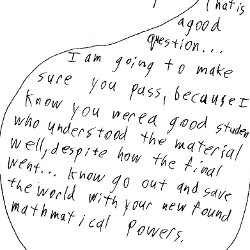 That is
a good
question...
I am going to make
sure you pass, because I
know you were a good studen
who understood the material
well, despite how the final
went... know go out and save
the world with your new found
mathmatical powers.